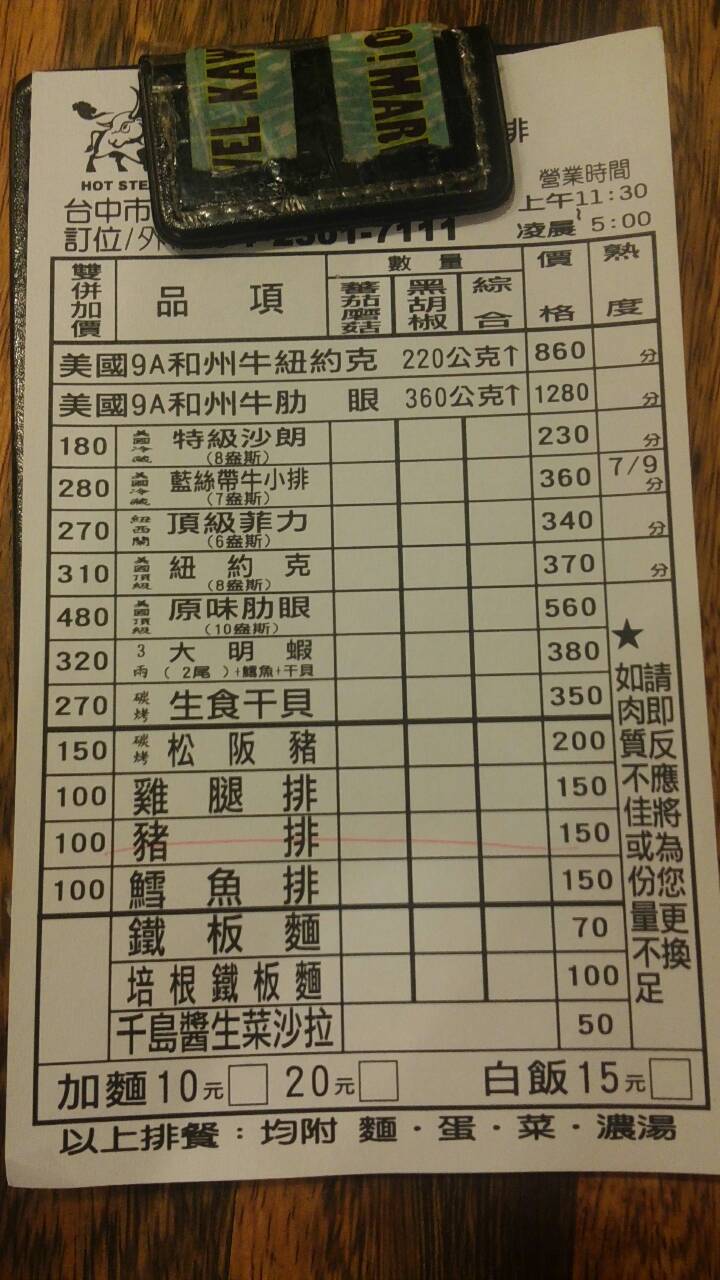 VEL KAW
O!MAR
排
HOT STE
台中市
訂位/外
2301-7111
營業時間
上午11:30
~
凌晨 5:00
雙併加價 品項 數量 價格 熟度
蕃茄蘑菇 黑胡椒 綜合
美國9A和州牛紐約克 220公克↑ 860 分
美國9A和州牛肋 眼 360公克↑ 1280 分
180 美國冷藏 特級沙朗 (8盎斯) 230 分
280 美國冷藏 藍絲帶牛小排 (7盎斯) 360 7/9分
270 紐西蘭 頂級菲力 (6盎斯) 340 分
310 美國頂級 紐約克 (8盎斯) 370 分
480 美國頂級 原味肋眼 (10盎斯) 560
320 3兩 大明蝦 (2尾)+鱈魚+干貝 380
270 碳烤 生食干貝 350
150 碳烤 松阪豬 200
100 雞腿排 150
100 豬排 150
100 鱈魚排 150
鐵板麵 70
培根鐵板麵 100
千島醬生菜沙拉 50
★
如肉質不佳或份量不足
請即反應將為您更換
加麵10元□ 20元□ 白飯15元□
以上排餐：均附 麵·蛋·菜·濃湯